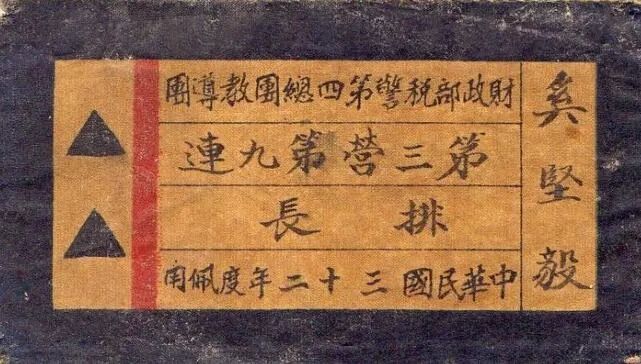 奚堅毅
財政部税警第四總團教導團
第三營第九連
排長
中華民國三十二年度佩用